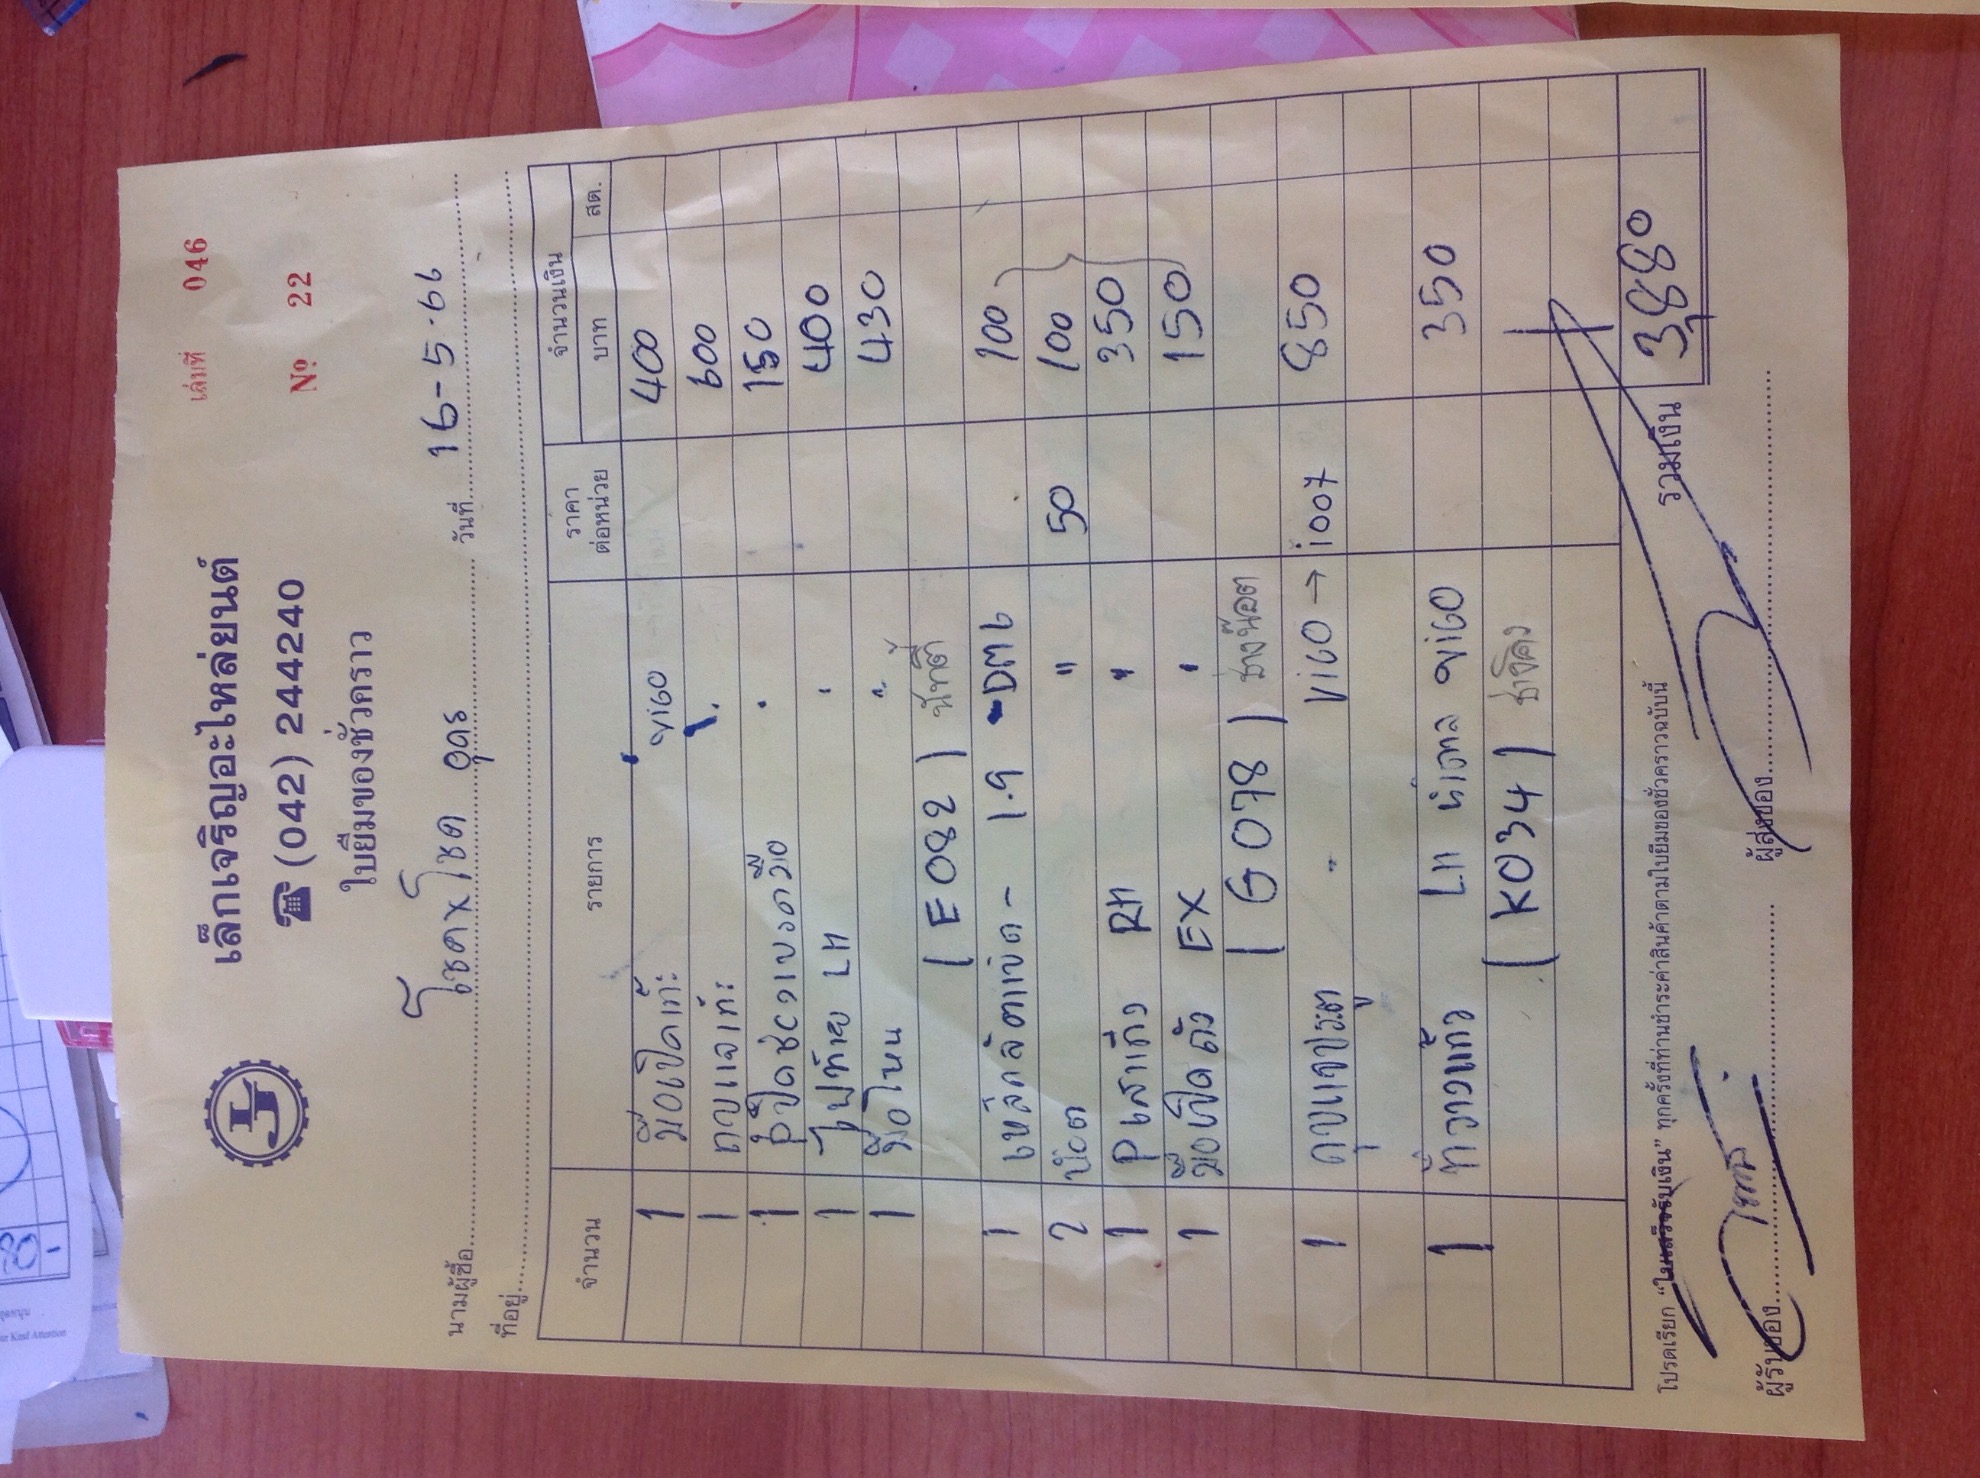 เล่มที่ 046
เล็กเจริญอะไหล่ยนต์
☎ (042) 244240
Nº 22
ใบยืมของชั่วคราว
นามผู้ซื้อ โชคxโชค อุดร วันที่ 16-5-66
ที่อยู่
จำนวน รายการ ราคาต่อหน่วย จำนวนเงิน
บาท สต.
1 มือเปิดเก๊ะ VIGO 400
1 กุญแจเก๊ะ " 600
1 Pปิดช่องเบรคมือ " 150
1 ไฟท้าย LH " 400
1 มือโหน " 430
(E082)
1 เหล็กล๊อตแข็ด - 1.9 - DM6 100
2 น๊อต " 50 100
1 Pเสาเก๋ง RH " 350
1 มือเปิดถัง EX " 150
(G078) ช่างน๊อต
1 กุญแจประตู VIGO → 1007 850
1 LH VIGO 350
(K034)
รวมเงิน 3,880
โปรดเรียก "ใบเสร็จรับเงิน" ทุกครั้งที่ท่านชำระค่าสินค้าตามใบยืมของชั่วคราวฉบับนี้
ผู้รับของ ผู้ส่งของ